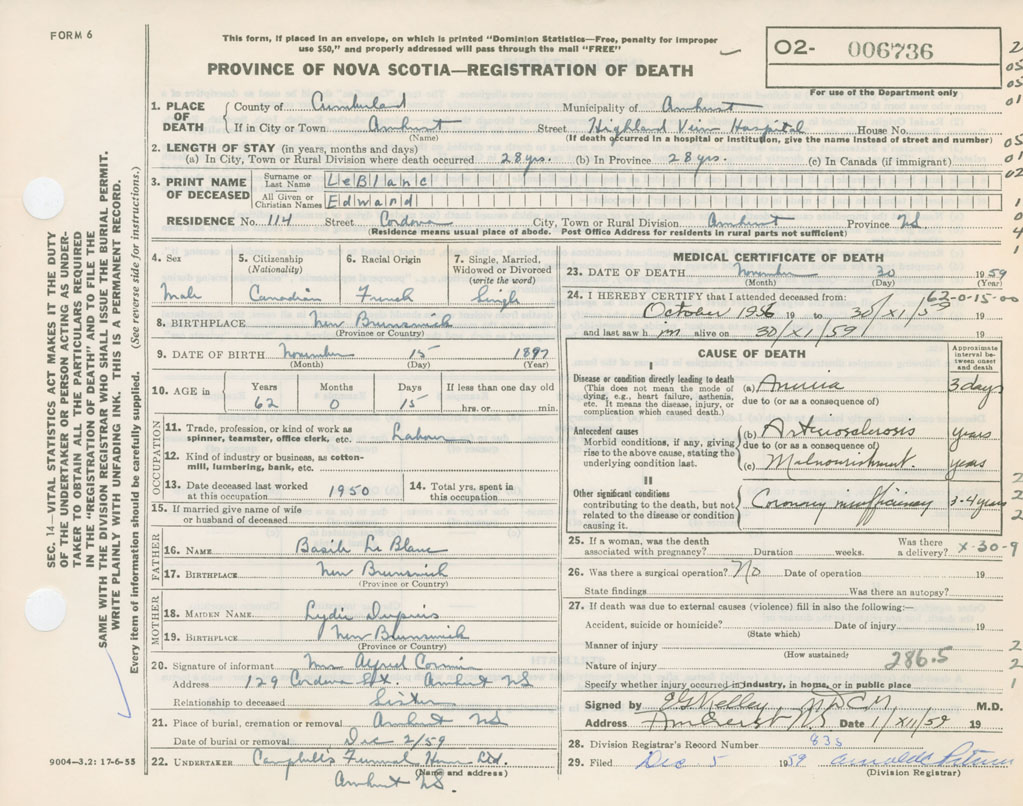 FORM 6
This form, if placed in an envelope, on which is printed "Dominion Statistics—Free, penalty for improper
use $50," and properly addressed will pass through the mail "FREE"
PROVINCE OF NOVA SCOTIA—REGISTRATION OF DEATH
O2- 006736
For use of the Department only
2
05
05
01
05
01
02
1
0
4
1
SEC. 14—VITAL STATISTICS ACT MAKES IT THE DUTY
OF THE UNDERTAKER OR PERSON ACTING AS UNDER-
TAKER TO OBTAIN ALL THE PARTICULARS REQUIRED
IN THE "REGISTRATION OF DEATH" AND TO FILE THE
SAME WITH THE DIVISION REGISTRAR WHO SHALL ISSUE THE BURIAL PERMIT.
WRITE PLAINLY WITH UNFADING INK. THIS IS A PERMANENT RECORD.
Every item of information should be carefully supplied. (See reverse side for instructions.)
1. PLACE OF DEATH
County of Cumberland Municipality of Amherst
If in City or Town Amherst Street Highland View Hospital House No.
(Name) (If death occurred in a hospital or institution, give the name instead of street and number)
2. LENGTH OF STAY (in years, months and days)
(a) In City, Town or Rural Division where death occurred 28 yrs. (b) In Province 28 yrs. (c) In Canada (if immigrant)
3. PRINT NAME OF DECEASED
Surname or Last Name LeBlanc
All Given or Christian Names Edward
RESIDENCE No. 114 Street Cordova City, Town or Rural Division Amherst Province NS.
(Residence means usual place of abode. Post Office Address for residents in rural parts not sufficient)
4. Sex
Male
5. Citizenship
(Nationality)
Canadian
6. Racial Origin
French
7. Single, Married,
Widowed or Divorced
(write the word)
Single
8. BIRTHPLACE New Brunswick
(Province or Country)
9. DATE OF BIRTH November 15 1897
(Month) (Day) (Year)
10. AGE in
Years Months Days If less than one day old
62 0 15 hrs. or min.
OCCUPATION
11. Trade, profession, or kind of work as
spinner, teamster, office clerk, etc. Labour
12. Kind of industry or business, as cotton-
mill, lumbering, bank, etc.
13. Date deceased last worked
at this occupation 1950
14. Total yrs. spent in
this occupation
15. If married give name of wife
or husband of deceased
FATHER
16. NAME Basile Le Blanc
17. BIRTHPLACE New Brunswick
(Province or Country)
MOTHER
18. MAIDEN NAME Lydie Dupuis
19. BIRTHPLACE New Brunswick
(Province or Country)
20. Signature of informant Mrs Alfred Cormier
Address 129 Cordova St. Amherst NS
Relationship to deceased Sister
21. Place of burial, cremation or removal Amherst NS
Date of burial or removal Dec 2/59
22. UNDERTAKER Campbell's Funeral Home Ltd.
(Name and address)
Amherst NS.
9004—3.2: 17-6-55
MEDICAL CERTIFICATE OF DEATH
23. DATE OF DEATH November 30 1959
(Month) (Day) (Year)
62-0-15-00
24. I HEREBY CERTIFY that I attended deceased from:
October 1956 19 to 30/XI/59 19
and last saw him alive on 30/XI/59 19
CAUSE OF DEATH
Approximate
interval be-
tween onset
and death
I
Disease or condition directly leading to death
(This does not mean the mode of
dying, e.g., heart failure, asthenia,
etc. It means the disease, injury, or
complication which caused death.)
(a) Anuria 3 days
due to (or as a consequence of)
Antecedent causes
Morbid conditions, if any, giving
rise to the above cause, stating the
underlying condition last.
(b) Arteriosclerosis years
due to (or as a consequence of)
(c) Malnourishment. years
II
Other significant conditions
contributing to the death, but not
related to the disease or condition
causing it.
Coronary insufficiency 3-4 years
2
2
25. If a woman, was the death
associated with pregnancy? Duration weeks. Was there
a delivery? X-30-9
26. Was there a surgical operation? No Date of operation 19
State findings Was there an autopsy?
27. If death was due to external causes (violence) fill in also the following:—
Accident, suicide or homicide? Date of injury 19
(State which)
Manner of injury 2
(How sustained)
Nature of injury 286.5 2
Specify whether injury occurred in industry, in home, or in public place 1
Signed by E G Kelley MDCM M.D.
Address Amherst NS Date 1/XII/59 19
28. Division Registrar's Record Number 835
29. Filed Dec 5 1959
(Division Registrar)